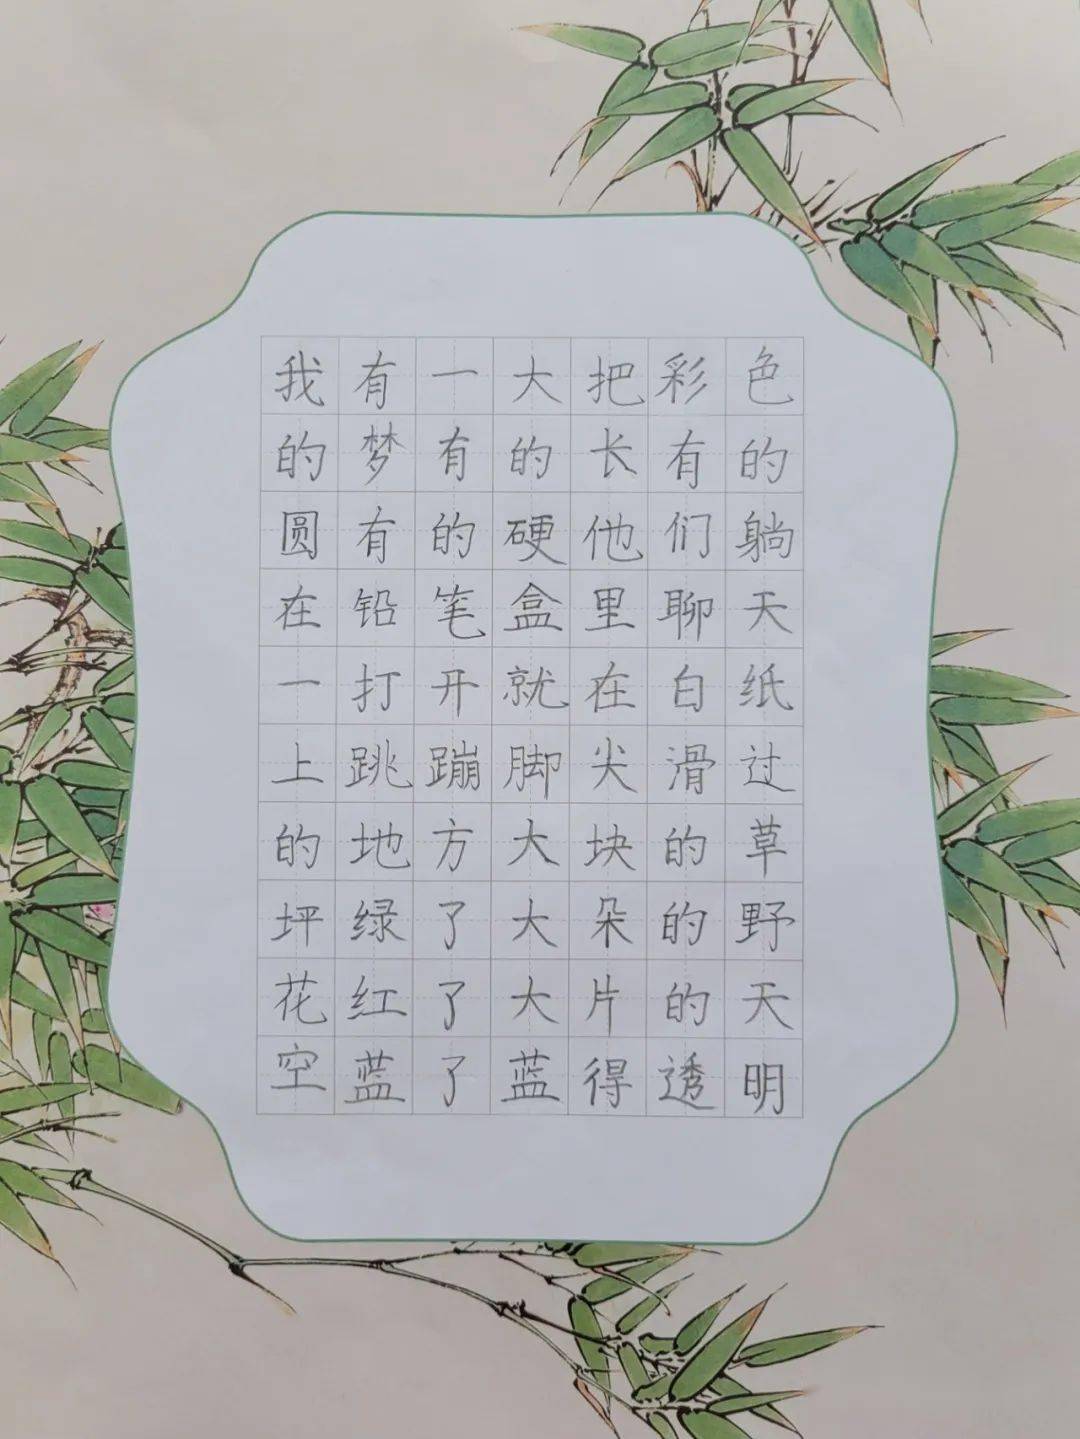 我有一大把彩色
的梦有的长有的
圆有的硬他们躺
在铅笔盒里聊天
一打开就在白纸
上跳蹦脚尖滑过
的地方大块的草
坪绿了大朵的野
花红了大片的天
空蓝了蓝得透明